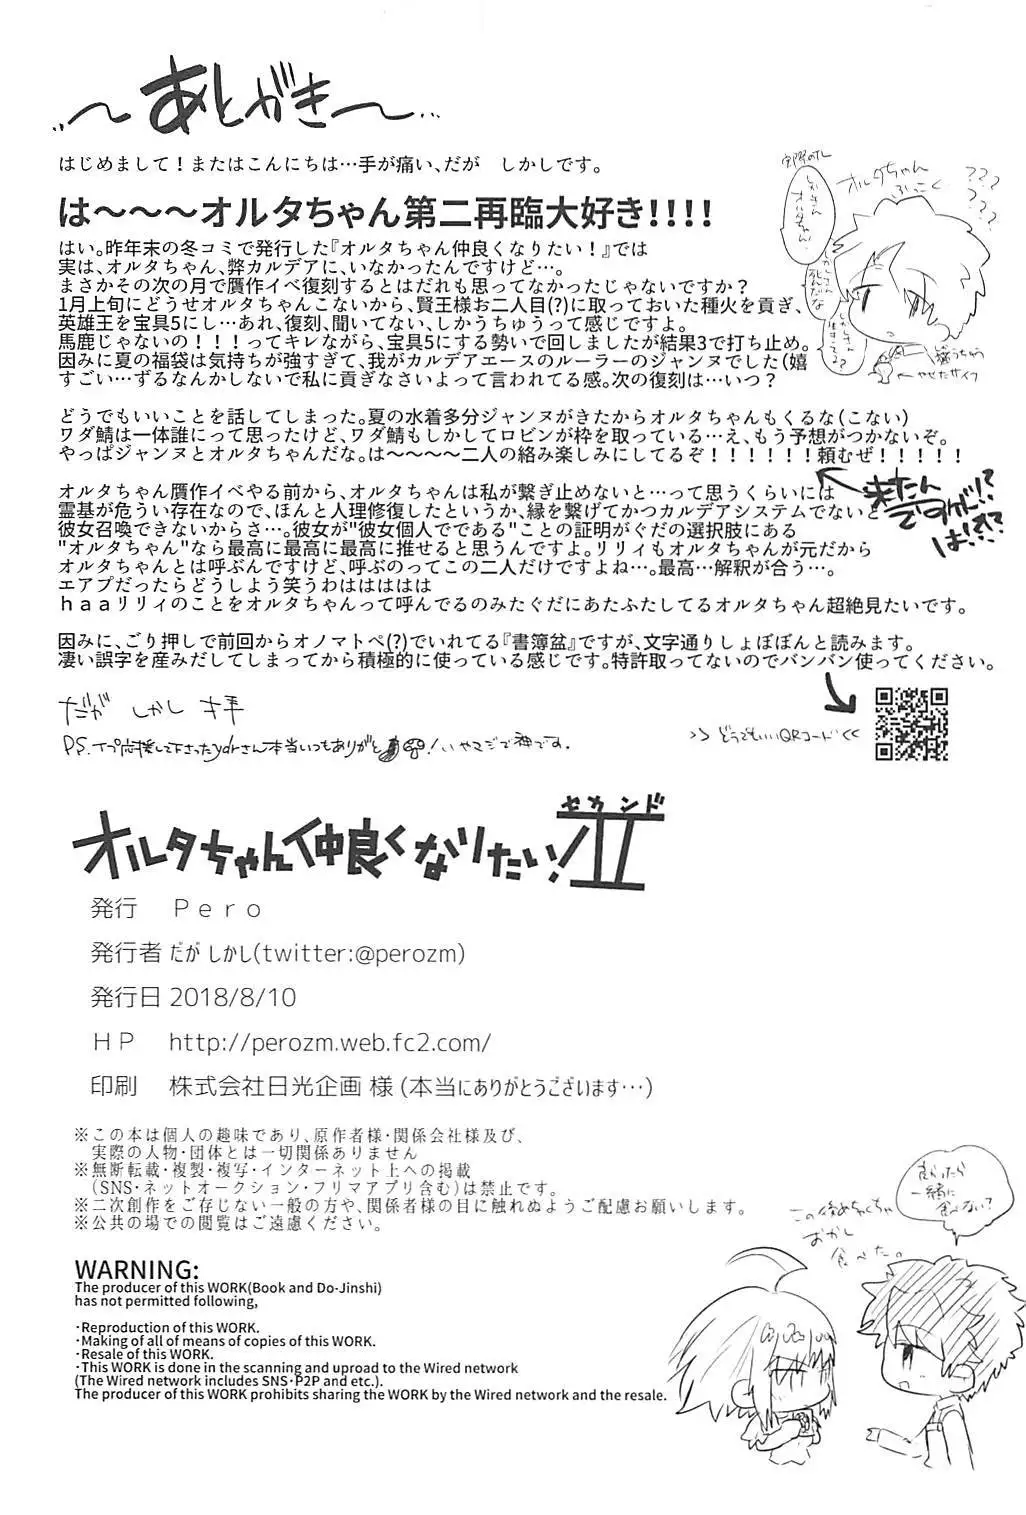 ～あとがき～
はじめまして！またはこんにちは…手が痛い、だが　しかしです。
は～～～オルタちゃん第二再臨大好き!!!!
はい。昨年末の冬コミで発行した『オルタちゃん仲良くなりたい！』では
実は、オルタちゃん、弊カルデアに、いなかったんですけど…。
まさかその次の月で贋作イベ復刻するとはだれも思ってなかったじゃないですか？
1月上旬にどうせオルタちゃんこないから、賢王様お二人目(?)に取っておいた種火を貢ぎ、
英雄王を宝具5にし…あれ、復刻、聞いてない、しかうちゅうって感じですよ。
馬鹿じゃないの！！！ってキレながら、宝具5にする勢いで回しましたが結果3で打ち止め。
因みに夏の福袋は気持ちが強すぎて、我がカルデアエースのルーラーのジャンヌでした(嬉
すごい…ずるなんかしないで私に貢ぎなさいよって言われてる感。次の復刻は…いつ？
どうでもいいことを話してしまった。夏の水着多分ジャンヌがきたからオルタちゃんもくるな(こない)
ワダ鯖は一体誰にって思ったけど、ワダ鯖もしかしてロビンが枠を取っている…え、もう予想がつかないぞ。
やっぱジャンヌとオルタちゃんだな。は～～～～二人の絡み楽しみにしてるぞ！！！！！！頼むぜ！！！！！
来たん
ですが!?
は!?
オルタちゃん贋作イベやる前から、オルタちゃんは私が繋ぎ止めないと…って思うくらいには
霊基が危うい存在なので、ほんと人理修復したというか、縁を繋げてかつカルデアシステムでないと
彼女召喚できないからさ…。彼女が"彼女個人でである"ことの証明がぐだの選択肢にある
"オルタちゃん"なら最高に最高に最高に推せると思うんですよ。リリィもオルタちゃんが元だから
オルタちゃんとは呼ぶんですけど、呼ぶのってこの二人だけですよね…。最高…解釈が合う…。
エアプだったらどうしよう笑うわははははは
ｈａａリリィのことをオルタちゃんって呼んでるのみたぐだにあたふたしてるオルタちゃん超絶見たいです。
因みに、ごり押しで前回からオノマトペ(?)でいれてる『書簿盆』ですが、文字通りしょぼぼんと読みます。
凄い誤字を産みだしてしまってから積極的に使っている感じです。特許取ってないのでバンバン使ってください。
だが しかし 拝
>> どうでもいいQRコード <<
オルタちゃん仲良くなりたい！Ⅱ
セカンド
発行　Ｐｅｒｏ
発行者 だが しかし(twitter:@perozm)
発行日 2018/8/10
ＨＰ　http://perozm.web.fc2.com/
印刷　株式会社日光企画 様 (本当にありがとうございます…)
※この本は個人の趣味であり、原作者様・関係会社様及び、
実際の人物・団体とは一切関係ありません
※無断転載・複製・複写・インターネット上への掲載
（SNS・ネットオークション・フリマアプリ含む）は禁止です。
※二次創作をご存じない一般の方や、関係者様の目に触れぬようご配慮お願いします。
※公共の場での閲覧はご遠慮ください。
良かったら
一緒に
食べない？
この後めちゃくちゃ
おかし
食べた。
WARNING:
The producer of this WORK(Book and Do-Jinshi)
has not permitted following,
・Reproduction of this WORK.
・Making of all of means of copies of this WORK.
・Resale of this WORK.
・This WORK is done in the scanning and uproad to the Wired network
(The Wired network includes SNS・P2P and etc.).
The producer of this WORK prohibits sharing the WORK by the Wired network and the resale.